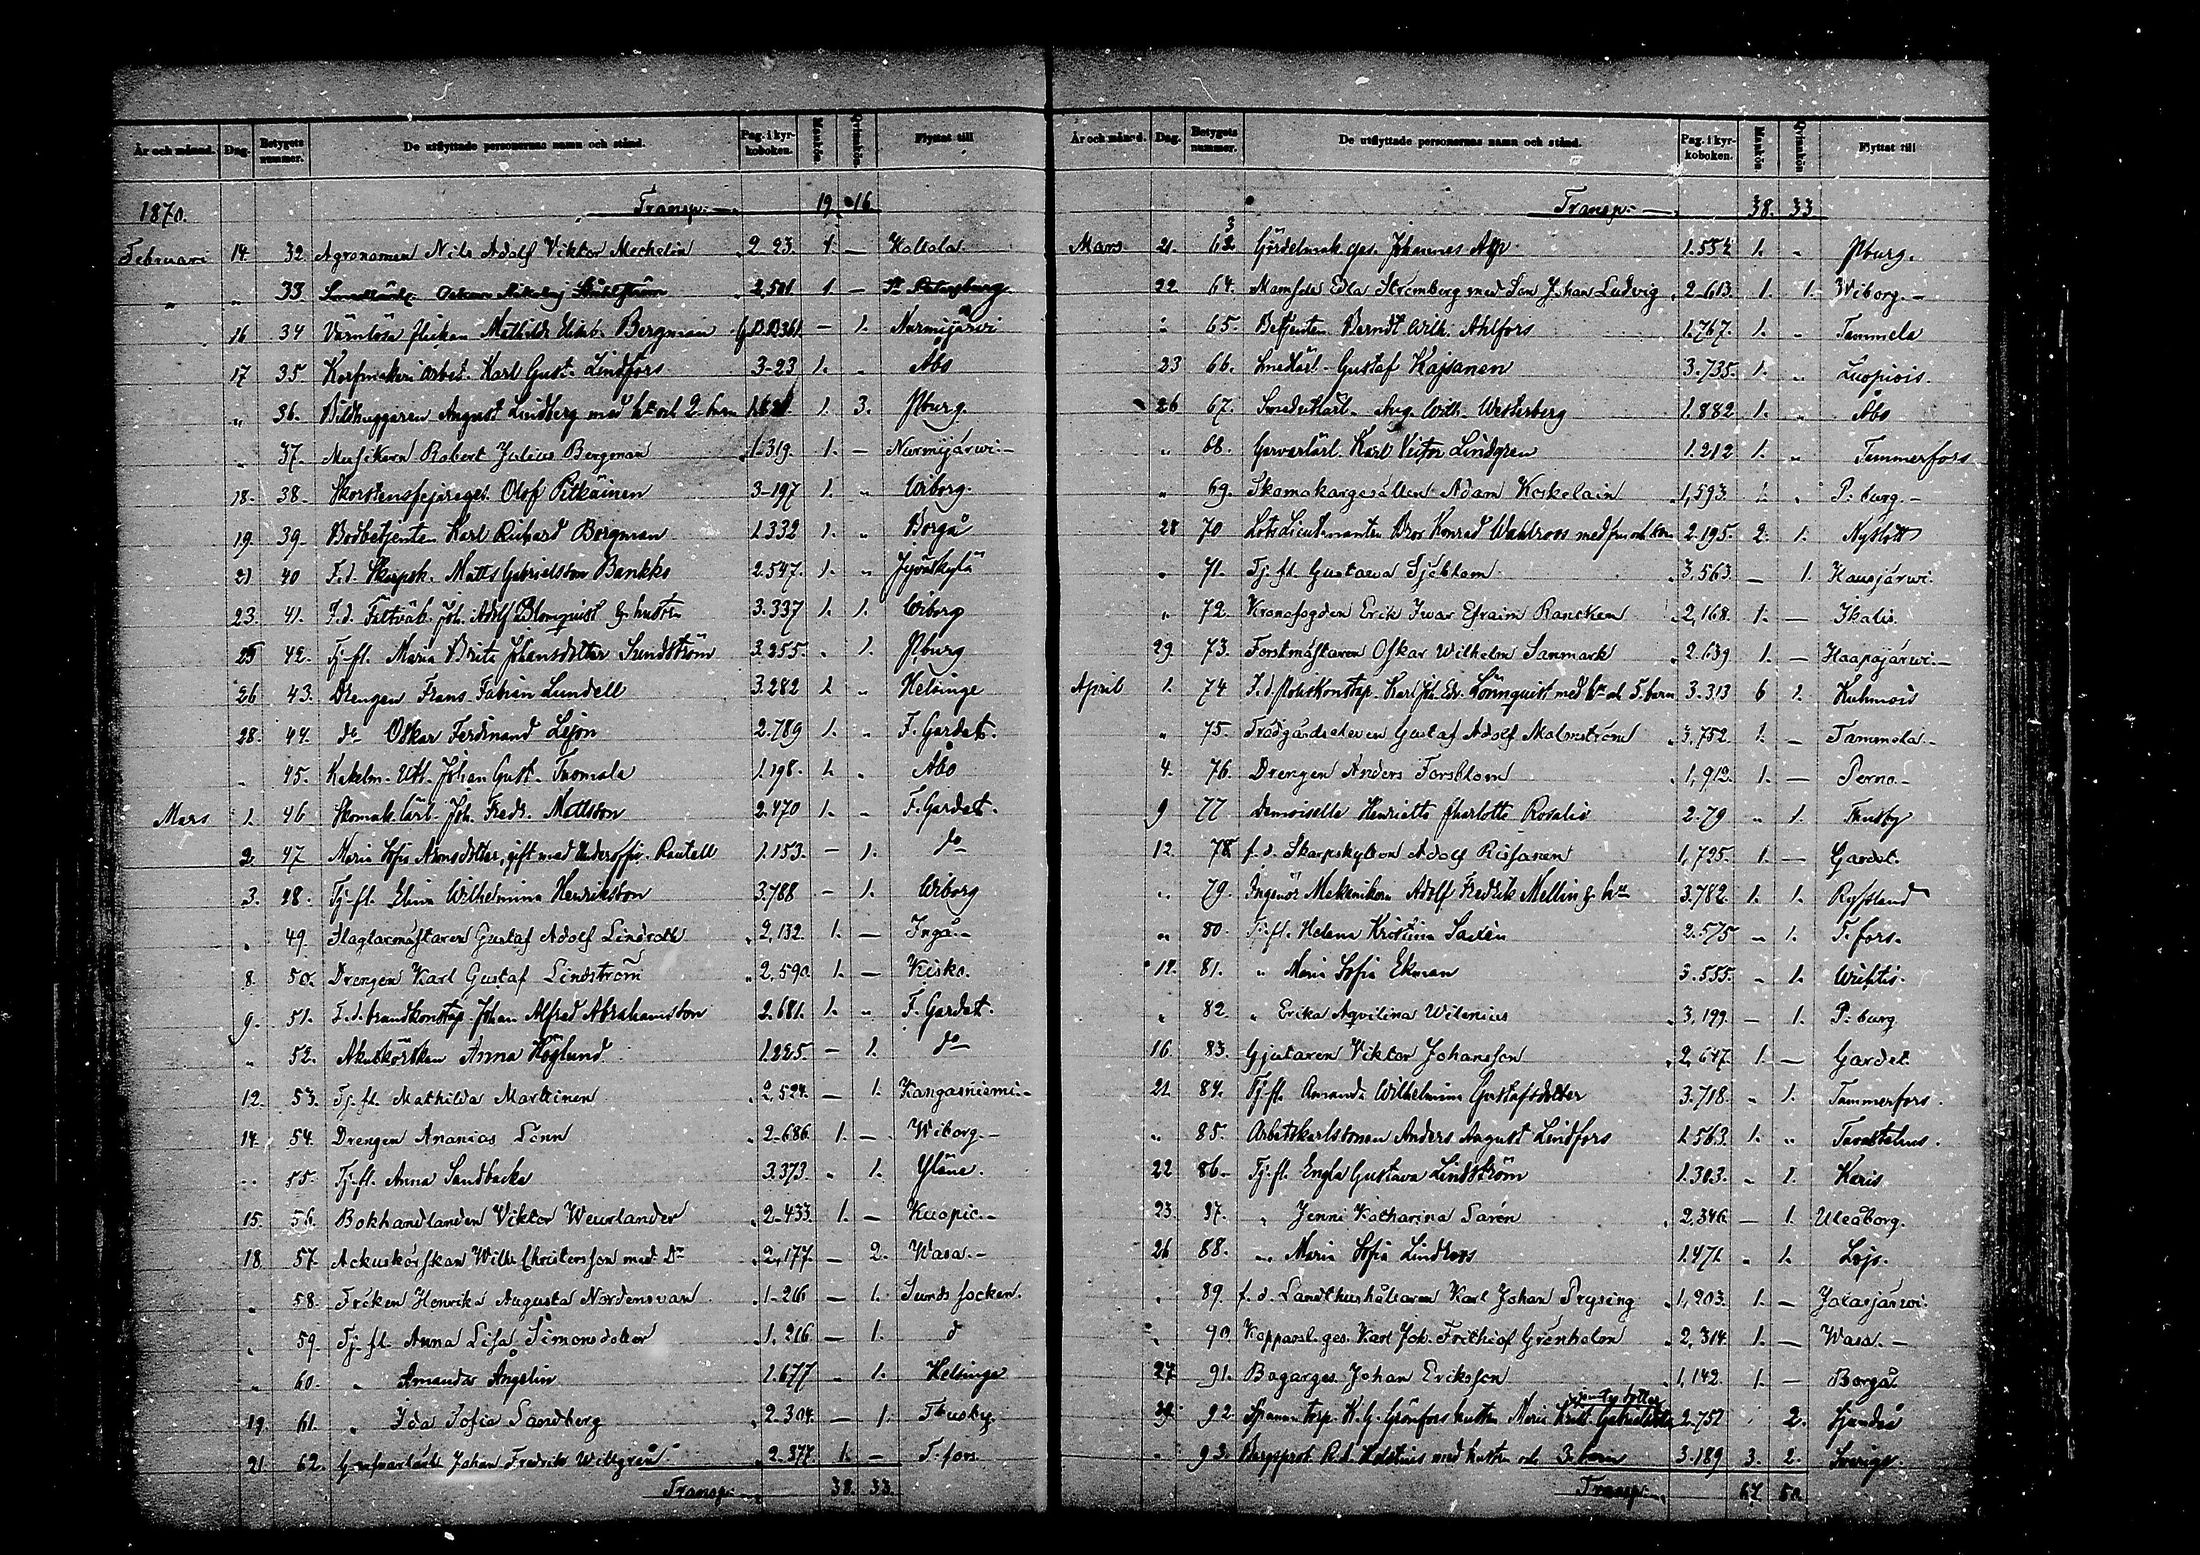 År och månad. Dag. Betygets nummer. De utflyttade personernas namn och stånd. Pag. i kyrkoboken. Mankön. Qvinnkön. Flyttat till
1870. Transp. 19. 16
Februari 14. 32 Agronomen Nils Adolf Viktor Mechelin 2-23. 1. — Kaltala
" " 33 Oskar Nikolaj 2,501 1 — St. Petersburg
16 34 Värnlösa flickan Mathilda Elisab. Bergman — 1. Nurmijärvi
17 35. Korfmakeri arbet. Karl Gust. Lindfors 3-23 1. " Åbo
" 36. Bildhuggaren August Lindberg med h:u och 2 barn 1. 3. P:burg.
" 37. Musikern Robert Julius Bergman 1-319. 1. — Nurmijärwi.—
18. 38. Skorstensfejareges. Olof Pitkäinen 3-197 1. " Wiborg.
19. 39. Bodbetjenten Karl Richard Borgman 1.332 1. " Borgå
21 40 F.d. Skarpsk. Matts Gabrielsson Bankks 2.547. 1. " Jyväskylä
23. 41. F.d. Joh. Adolf Blomquist & hustru 3.337 1. 1. Wiborg
25 42. Tj.fl. Maria Brita Johansdotter Sundström 3.255. " 1. P:burg
26 43. Drengen Frans Fabian Lundell 3.282 1. " Helsinge
28. 44. d:o Oskar Ferdinand Lejon 2.789 1. " F. Gardet.
" 45. Kakelm. Johan Gust. Tuomala 1.198. 1. " Åbo
Mars 1. 46 Skomak. lärl. Joh. Fredr. Mattsson 2.470 1. " F. Gardet.
2 47 Maria Sofia Amnsdotter, gift med Underoffic. Rautell 1.153. — 1. d:o
3. 48. Tj.fl. Elina Wilhelmina Henriksson 3.788 — 1. Wiborg
" 49. Slagtarmästaren Gustaf Adolf Lindroth 2,132. 1. — Ingå.—
8. 50. Drengen Karl Gustaf Lindström 2,590. 1. — Kisko.
9. 51. F.d. brandkonstap. Johan Alfred Abrahamsson 2.681. 1. " F. Gardet.
" 52. Akuskörskan Anna Höglund 1.225 — 1. d:o
12. 53. Tj.fl. Mathilda Markkinen 2,524. — 1. Kangasniemi.—
14. 54. Drengen Ananias Tinn 2-686. 1. — Wiborg.—
" 55. Tj.fl. Anna Sandbacka 3.373 " 1. Yläne.
15. 56. Bokhandlanden Viktor Weurlander 2-433. 1. — Kuopio.—
18 57. Ackuskörskan Wilh. Christersson med D:r 2,177. — 2. Wasa.—
" 58. Fröken Henrika Augusta Nordensvan 1-266 — 1. Sunds socken.
" 59. Tj.fl. Anna Lisa Simonsdotter 1.216 — 1. d
" 60. " Amanda Ångelin 1.677 " 1. Helsinge
19. 61. " Ida Sofia Sandberg 2-304. — 1. Thusby.
21 62. Garfvarlärl. Johan Fredrik Willgren 2-377. 1. — T:fors
Transp. 38. 33.
År och månad. Dag. Betygets nummer. De utflyttade personernas namn och stånd. Pag. i kyrkoboken. Mankön. Qvinnkön Flyttat till
Transp. 38. 33
Mars 21. 63. Gördelmak. ges. Johannes Alp 1.554 1. " P:burg.
22 64. Mamsell Edla Strömberg med Son Johan Ludvig 2-613. 1. 1. Wiborg.—
" 65. Betjenten Berndt Wilh. Ahlfors 1.767. 1. " Tammela
23 66. Smedlärl. Gustaf Kajsanen 3.735. 1. " Luopiois.
26 67. Smedslärl. Aug. Wilh. Westerberg 1.882 1. " Åbo
" 68. Garvarlärl. Karl Victor Lindgren 1.212 1. " Tammerfors
" 69. Skomakargesällen Adam Koskelain 1,593. 1. " P:burg.—
28 70 Lotslieutenanten Bror Konrad Wahlroos med fru och son 2.195. 2. 1. Nyslott
" 71. Tj.fl. Gustava Sjöblom 3,563. — 1. Hausjärwi.
" 72. Kronofogden Erik Iwar Efraim Rancken 2,168. 1. — Ikalis.
29. 73. Forstmästaren Oskar Wilhelm Sanmark 2.639 1. — Haapajärwi.—
April 1. 74 F.d. poliskonstap. Karl Joh. Edv. Lönnquist med h:u och 5 barn 3.313 6 1. Kuhmois
" 75. Trädgårdseleven Gustaf Adolf Malmström 3,752 1. — Tammela.—
4. 76. Drengen Anders Forsblom 1,912. 1. — Perno.—
9 77 Demoiselle Henrietta Charlotta Rosalie 2.79 " 1. Thusby
12. 78 f.d. Skarpskytten Adolf Rissanen 1,725. 1. — Gardet.
" 79. Ingeniör Mekanikern Adolf Fredrik Mellin & h:u 3.782. 1. 1. Ryssland
" 80. Tj.fl. Helena Kristina Saxén 2.575 " 1. T:fors.
12. 81. " Maria Sofia Ekman 3.555. " 1. Wichtis.
" 82. " Erika Aqvilina Wilenius 3,199. — 1. P:burg
16 83. Gjutaren Viktor Johansson 2,647. 1. — Gardet.
21. 84. Tj.fl. Amanda Wilhelmina Gustafsdotter 3.718. " 1. Tammerfors.
" 85. Arbetskarlssonen Anders August Lindfors 1.563. 1. " Tavastehus.
22 86. Tj.fl. Engla Gustava Lindström 1.303. " 1. Karis
23. 87. " Jenni Katharina Sarén 2,346. — 1. Uleåborg.
26 88. " Maria Sofia Lindroos 1.471 " 1. Lojo.
" 89 f.d. Landthushållaren Karl Johan Prysing 1,203. 1. — Jalasjärwi.
" 90. Kopparsl. ges. Karl Joh. Frithiof Grönholm 2,314. 1. — Wasa.—
27. 91. Bagarges. Johan Eriksson 1,142. 1. — Borgå.
29. 92. torp. K. G. Grönfors hustru Maria Krist. Gabrielsdotter jemte dotter 2.752 2. Sjundeå
" 93. R. d. Holstius med hustru och 3 barn 3.189 3. 2. Sverige.
Transp. 67. 50.